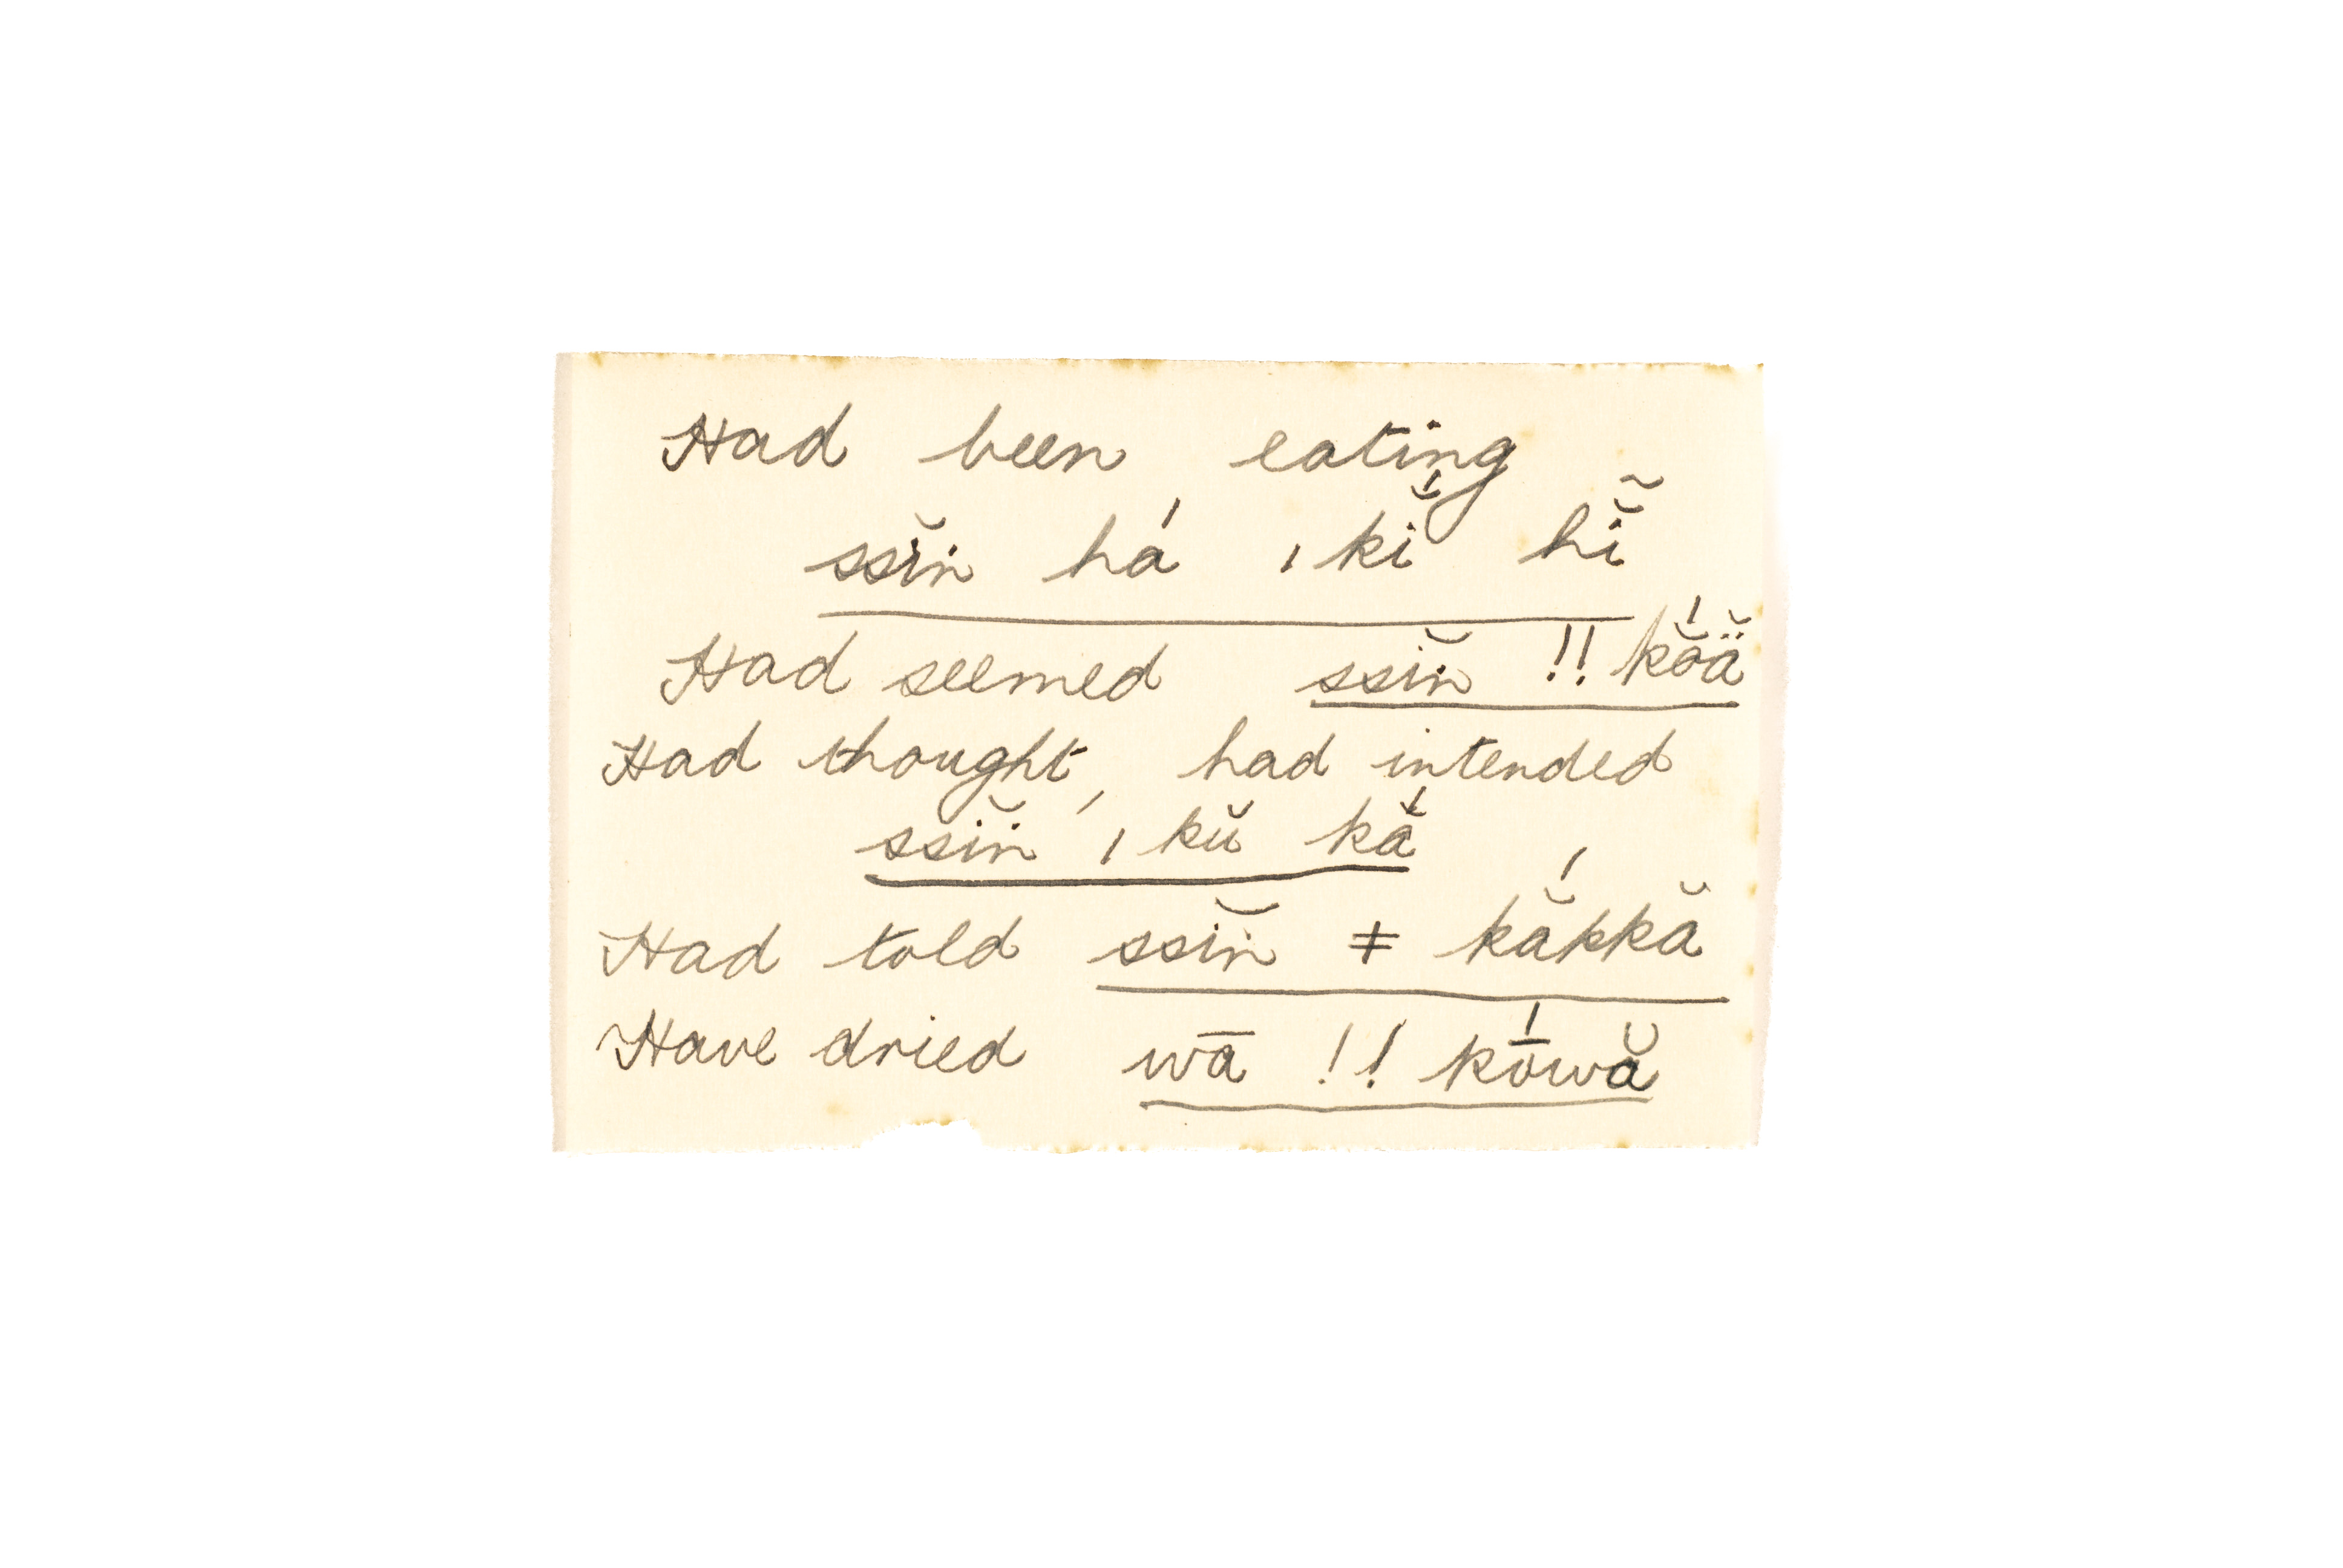 Had been eating
ssĭṅ há ˌkĭ́ hĭ̃
Had seemed ssĭṅ !! kŏ́ä̆
Had thought, had intended
ssĭṅ ˌkŭ kắ
Had told ssĭṅ ǂ kắkkă
Have dried wā !! kṓwă